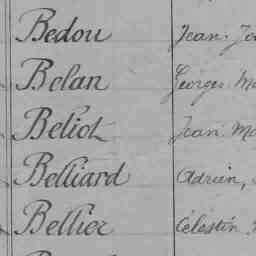 Bedou Jean
Belan Georges
Beliot Jean
Belliard Adrien,
Bellier Célestin